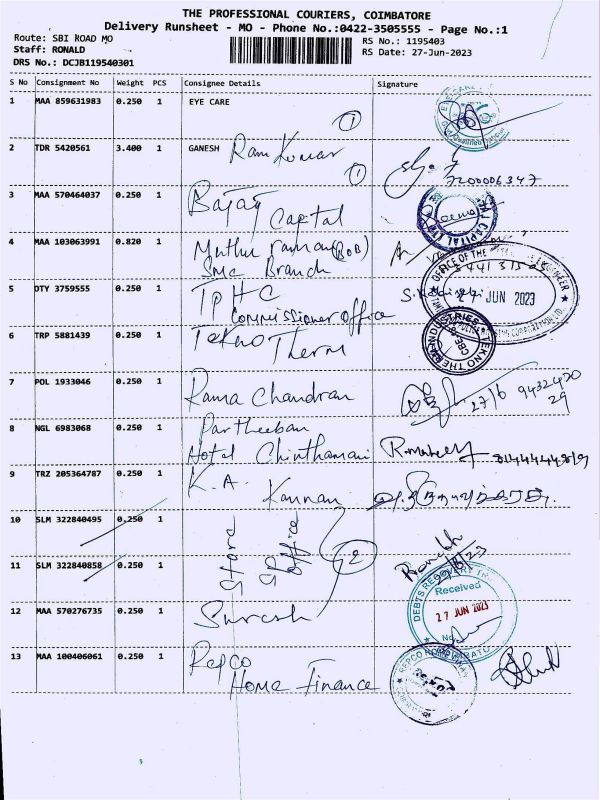 THE PROFESSIONAL COURIERS, COIMBATORE
Delivery Runsheet - MO - Phone No.:0422-3505555 - Page No.:1
Route: SBI ROAD MO
RS No.: 1195403
Staff: RONALD
RS Date: 27-Jun-2023
DRS No.: DCJB119540301
S No Consignment No Weight PCS Consignee Details Signature
1 MAA 859631983 0.250 1 EYE CARE
1
2 TDR 5420561 3.400 1 GANESH Ram Kumar
1
7200006347
3 MAA 570464037 0.250 1 Bajaj Capital
4 MAA 103063991 0.820 1 Muthu raman (BOB)
Smc Branch
OFFICE OF THE
5 DTY 3759555 0.250 1 TPHC
Commissioner office
JUN 2023
6 TRP 5881439 0.250 1 Tekno Therm
INDUSTRIES TEKNO THERM
7 POL 1933046 0.250 1 Rama Chandran
27/6 9432420
29
8 NGL 6983068 0.250 1 Partheeban
Hotel Chinthamani
9 TRZ 205364787 0.250 1 K. A. Kannan
10 SLM 322840495 0.250 1
Store
Office
2
11 SLM 322840858 0.250 1
DEBTS RECOVERY
Received
27 JUN 2023
12 MAA 570276735 0.250 1 Suresh
13 MAA 100406061 0.250 1 Repco
Home Finance
REPCO